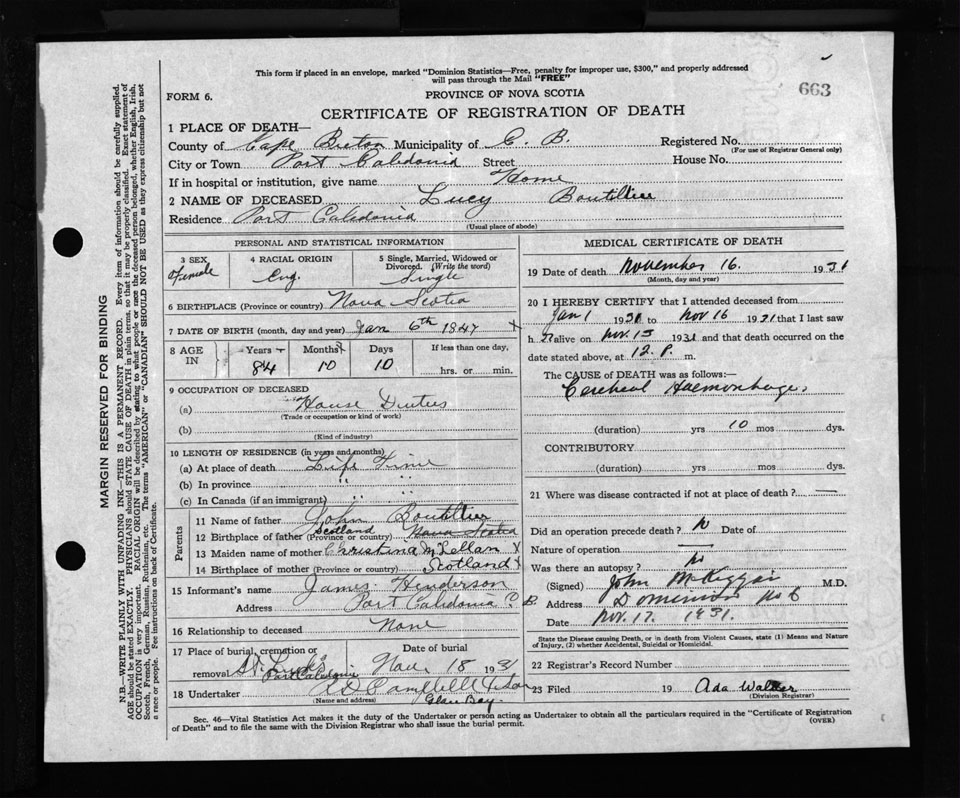 This form if placed in an envelope, marked "Dominion Statistics—Free, penalty for improper use, $300," and properly addressed
will pass through the Mail "FREE"
663
FORM 6.
PROVINCE OF NOVA SCOTIA
CERTIFICATE OF REGISTRATION OF DEATH
1 PLACE OF DEATH—
County of Cape Breton Municipality of C. B. Registered No.
(For use of Registrar General only)
City or Town Port Caledonia Street House No.
If in hospital or institution, give name Home
2 NAME OF DECEASED Lucy Boutillier
Residence Port Caledonia
(Usual place of abode)
PERSONAL AND STATISTICAL INFORMATION
3 SEX 4 RACIAL ORIGIN 5 Single, Married, Widowed or
Divorced. (Write the word)
Female Eng. Single
6 BIRTHPLACE (Province or country) Nova Scotia
7 DATE OF BIRTH (month, day and year) Jan 6th 1847 x
8 AGE IN Years Months Days If less than one day,
84 10 10 hrs. or min.
9 OCCUPATION OF DECEASED
(a) House Duties
(Trade or occupation or kind of work)
(b)
(Kind of industry)
10 LENGTH OF RESIDENCE (in years and months)
(a) At place of death Life Time
(b) In province " "
(c) In Canada (if an immigrant) " "
Parents
11 Name of father John Boutillier
12 Birthplace of father (Province or country) Scotland Nova Scotia
13 Maiden name of mother Christina McLellan x
14 Birthplace of mother (Province or country) Scotland x
15 Informant's name James Henderson
Address Port Caledonia C. B.
16 Relationship to deceased None
17 Place of burial, cremation or Date of burial
removal St. Luke's Port Caledonia Nov 18 1931
18 Undertaker A D Campbell & Son
(Name and address) Glace Bay
MEDICAL CERTIFICATE OF DEATH
19 Date of death November 16. 1931
(Month, day and year)
20 I HEREBY CERTIFY that I attended deceased from
Jan 1 1931 to Nov 16 1931 that I last saw
h er alive on Nov 15 1931 and that death occurred on the
date stated above, at 12 P. m.
The CAUSE OF DEATH was as follows:
Cerebral Haemorrhage.
(duration) yrs 10 mos dys.
CONTRIBUTORY
(duration) yrs. mos. dys.
21 Where was disease contracted if not at place of death? —
Did an operation precede death? No Date of
Nature of operation —
Was there an autopsy? No
(Signed) John McKiggan M.D.
Address Dominion No 6
Date Nov. 17. 1931.
State the Disease causing Death, or in death from Violent Causes, state (1) Means and Nature
of Injury, (2) whether Accidental, Suicidal or Homicidal.
22 Registrar's Record Number
23 Filed 19 Ada Walker
(Division Registrar)
Sec. 46—Vital Statistics Act makes it the duty of the Undertaker or person acting as Undertaker to obtain all the particulars required in the "Certificate of Registration
of Death" and to file the same with the Division Registrar who shall issue the burial permit. (OVER)
MARGIN RESERVED FOR BINDING
N.B.—WRITE PLAINLY WITH UNFADING INK—THIS IS A PERMANENT RECORD. Every item of information should be carefully supplied.
AGE should be stated EXACTLY. PHYSICIANS should STATE CAUSE OF DEATH in plain terms, so that it may be properly classified. Exact statement of
OCCUPATION is very important. RACIAL ORIGIN will be described by stating to what people or race the deceased person belonged, whether English, Irish,
Scotch, French, German, Russian, Ruthenian, etc. The terms "AMERICAN" or "CANADIAN" SHOULD NOT BE USED as they express citizenship but not
a race or people. See instructions on back of Certificate.